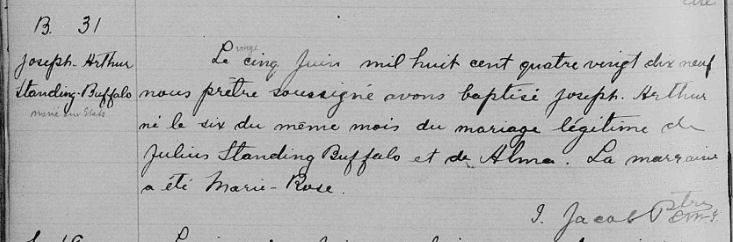 B. 31
Joseph-Arthur
Standing-Buffalo
Le vingt cinq Juin mil huit cent quatre vingt dix neuf
nous prêtre soussigné avons baptisé Joseph-Arthur
né le six du même mois du mariage légitime de
Julius Standing Buffalo et de Alma. La marraine
a été Marie-Rose.
J. Jacob Ptre
O.M.I.